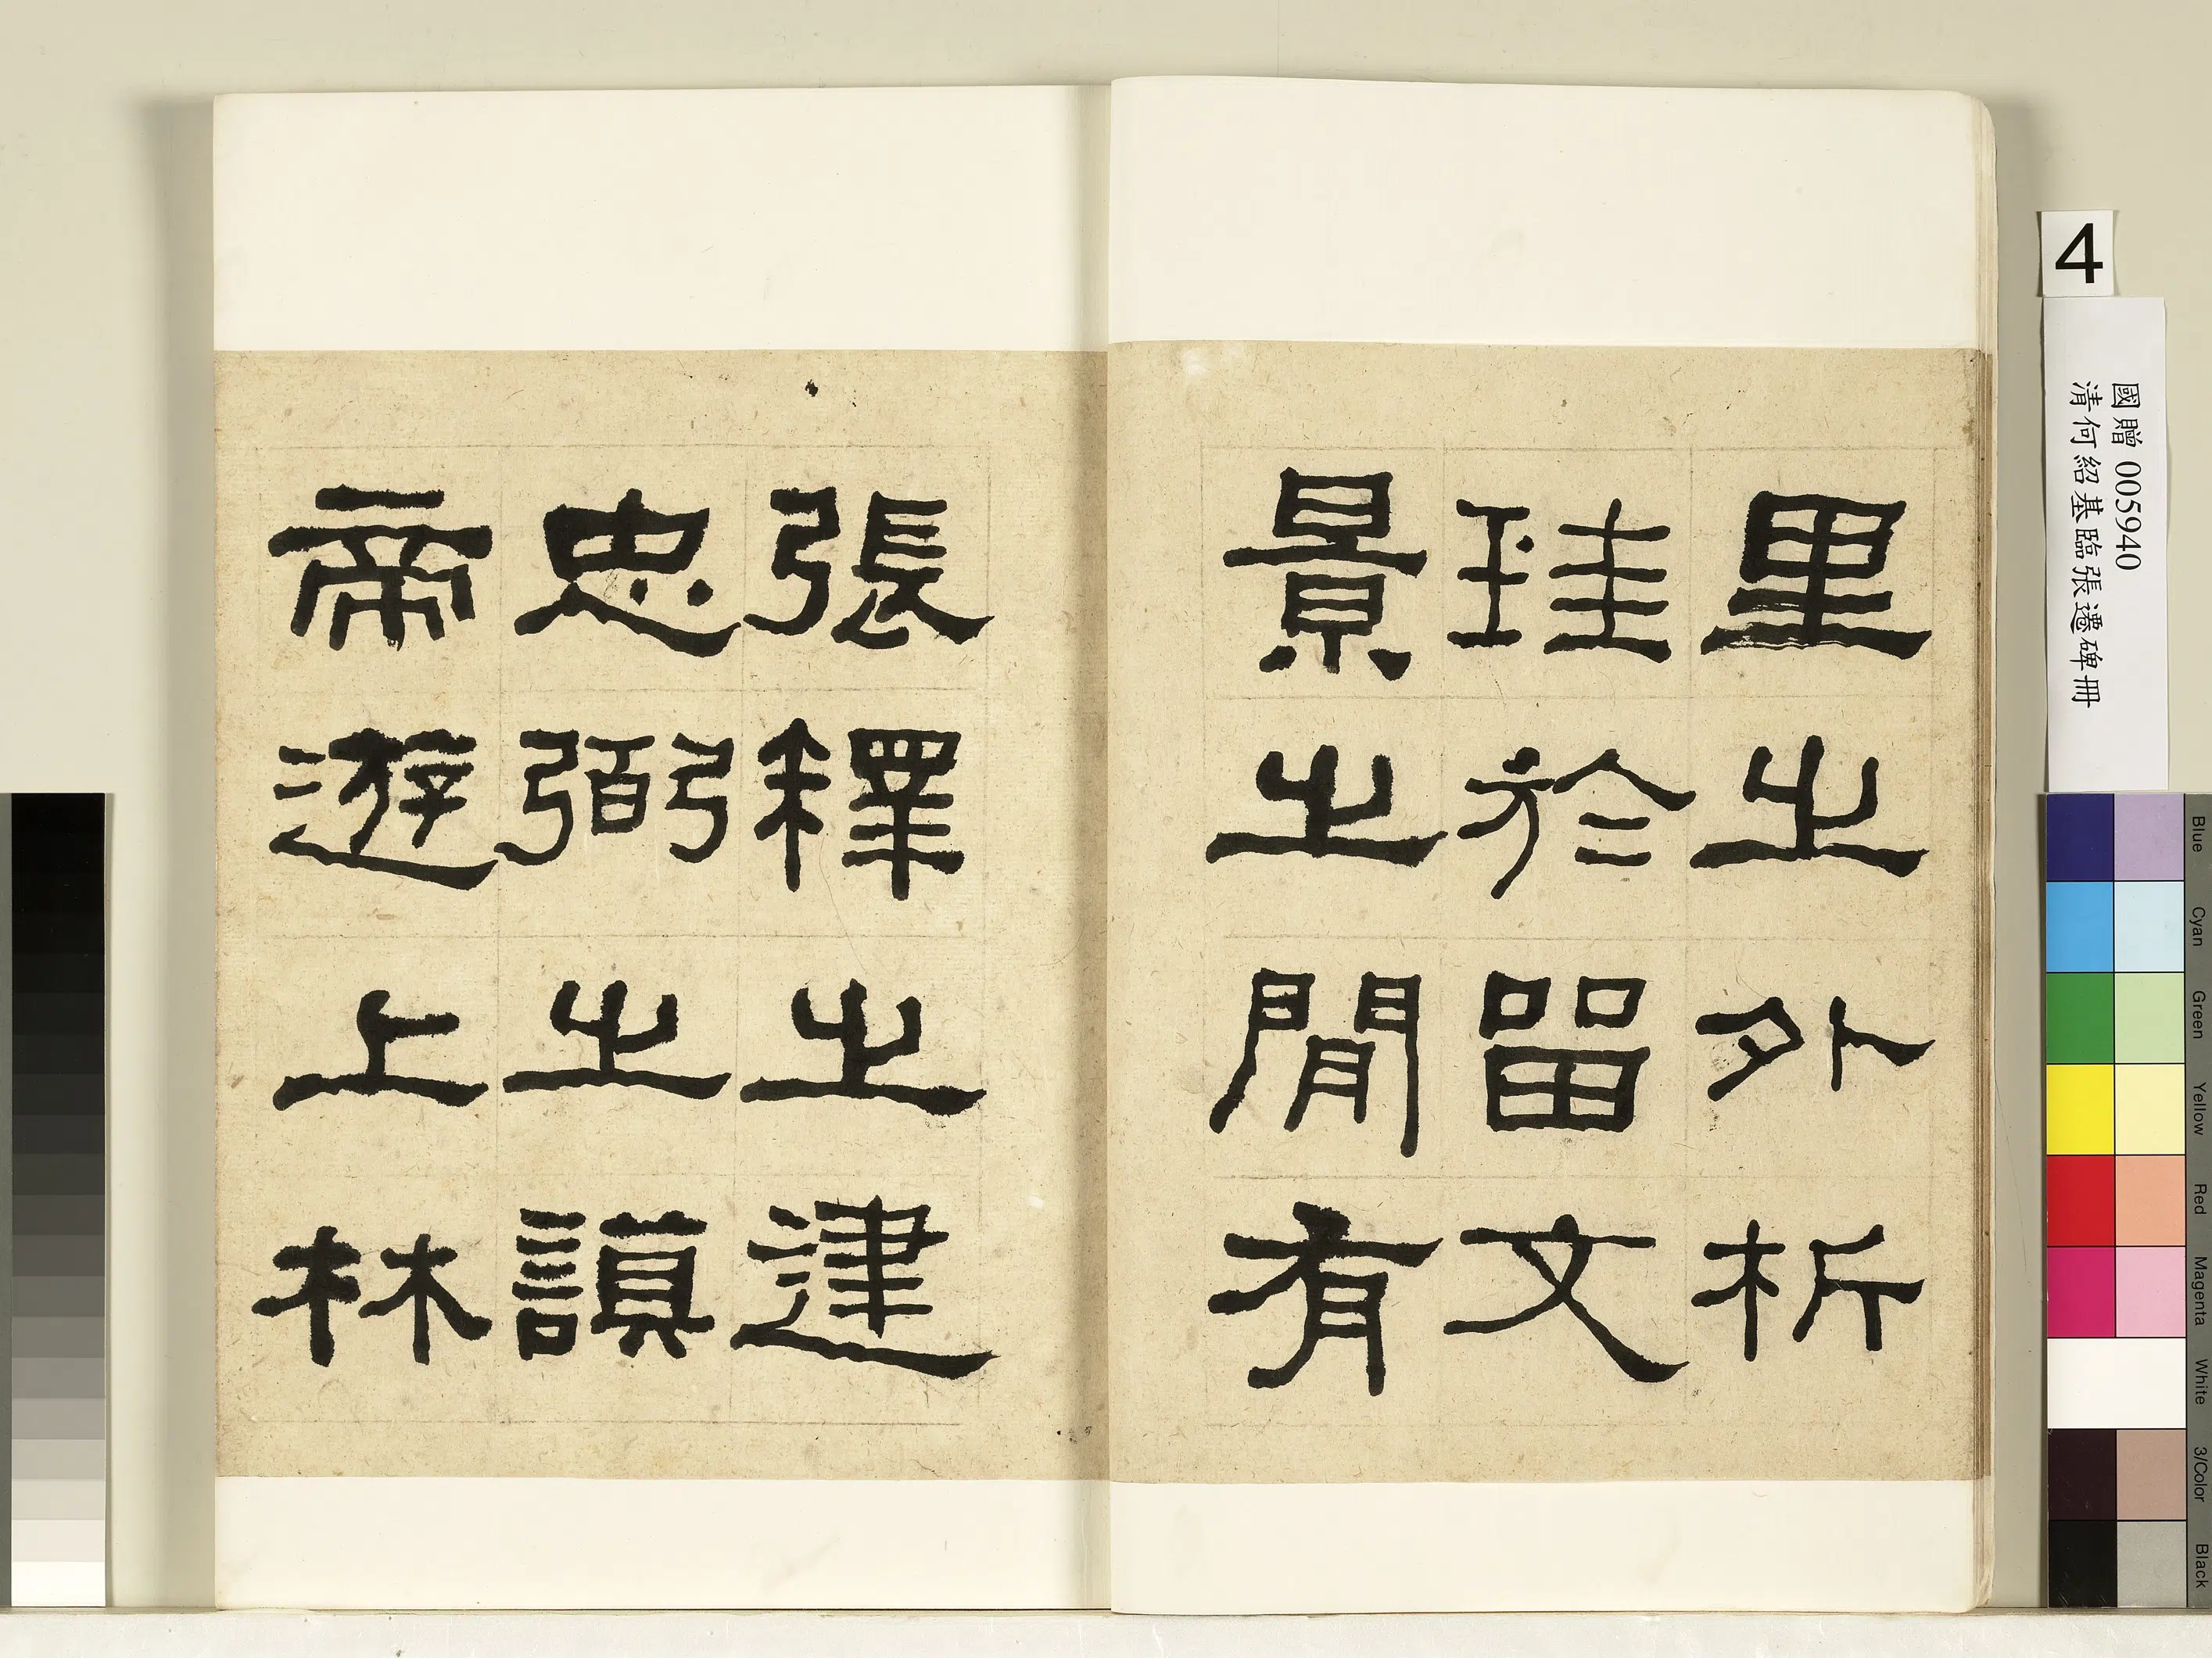 里之外析
珪於留文
景之閒有
張釋之建
忠弼之謨
帝遊上林
4
國贈 005940
清何紹基臨張遷碑冊
Blue
Cyan
Green
Yellow
Red
Magenta
White
3/Color
Black